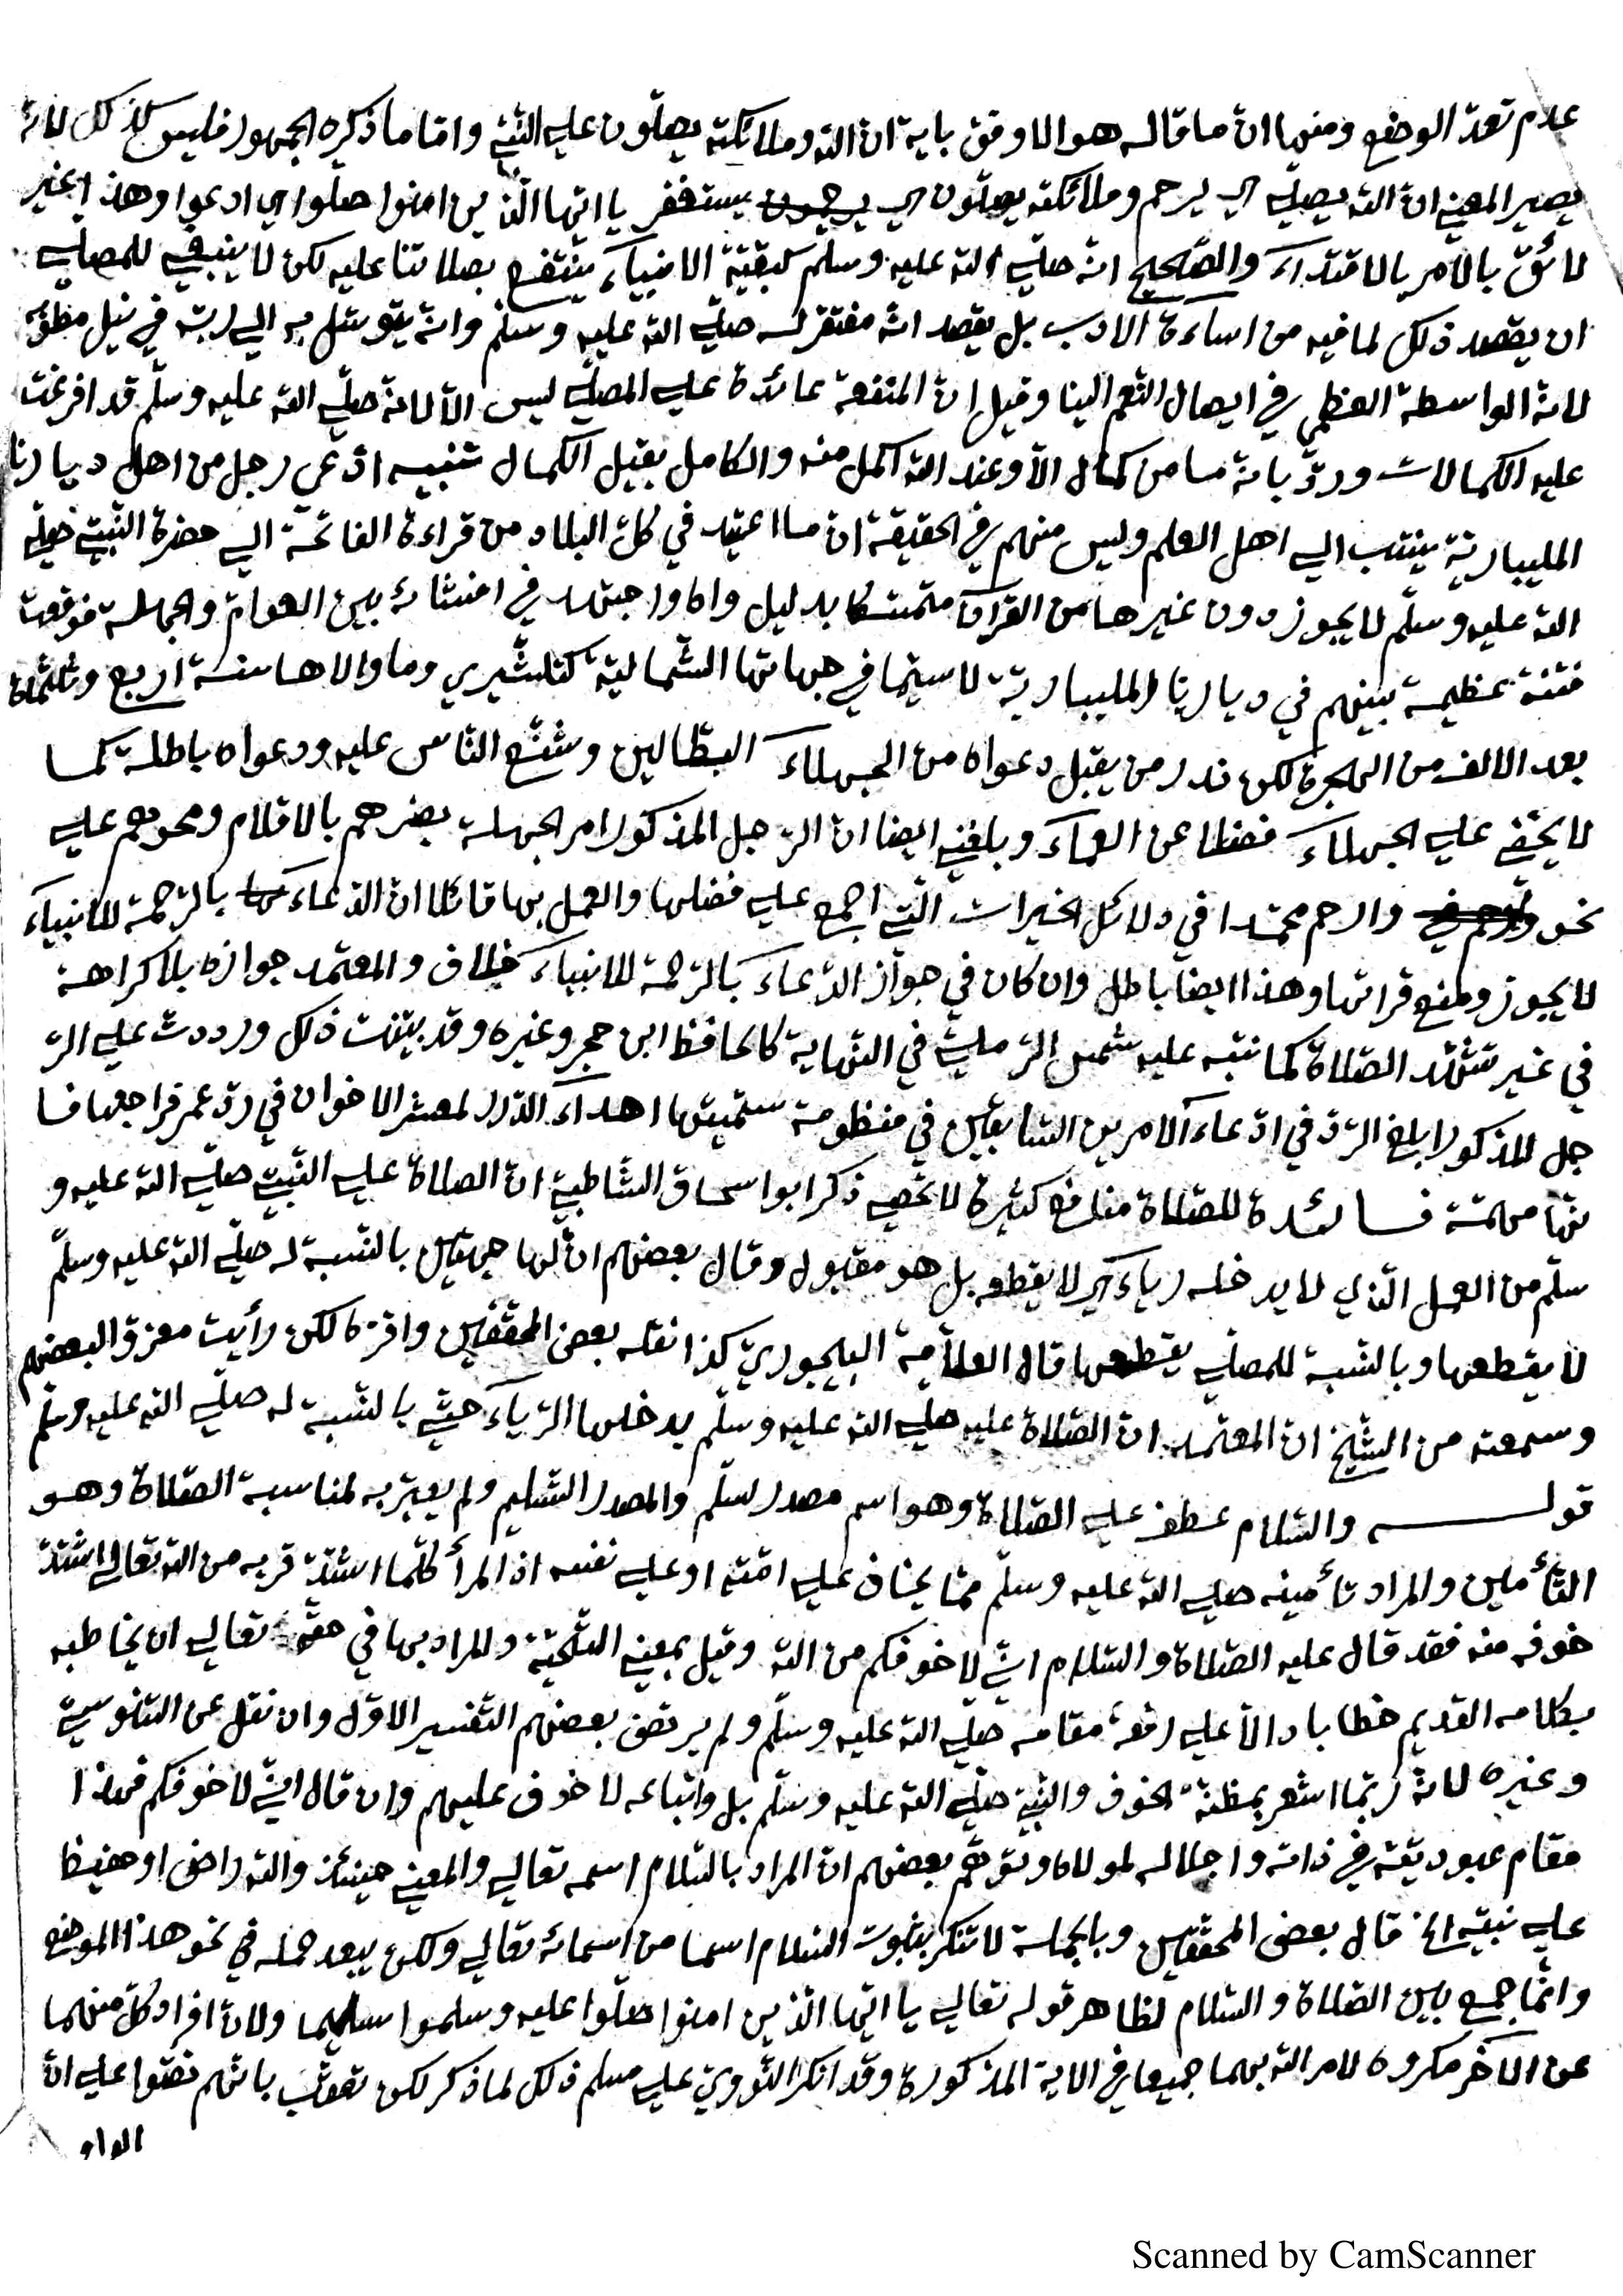 عدم تعدد الوضع ومنها ان ما قاله هو الاوفق باية ان الله وملائكته يصلون على النبي واما ما ذكره الجمهور فليس كذلك لانه
يصير المعنى ان الله يصلي اي يرحم وملائكته يصلون اي يستغفر يا ايها الذين امنوا صلوا اي ادعوا وهذا غير
لائق بالامر بالاقتداء والصحيح انه صلى الله عليه وسلم كبقية الانبياء ينتفع بصلاتنا عليه لكن لا ينبغي للمصلي
ان يقصد ذلك لما فيه من اساءة الادب بل يقصد انه مفتقر له صلى الله عليه وسلم وانه يتوسل به الى ربه في نيل مطلوبه
لانه الواسطة العظمى في ايصال النعم الينا وقيل ان المنفعة عائدة على المصلي ليس الا لانه صلى الله عليه وسلم قد افرغت
عليه الكمالات ورد بانه ما من كمال الا وعند الله اكمل منه والكامل يقبل الكمال تنبيه ادعى رجل من اهل ديارنا
المليبارية ينتسب الى اهل العلم وليس منهم في الحقيقة ان ما اعتيد في كل البلاد من قراءة الفاتحة الى حضرة النبي صلى
الله عليه وسلم لا يجوز دون غيرها من القرآن متمسكا بدليل واه واجتهد في افشائه بين العوام والجهلة فوقعت
فتنة عظيمة بينهم في ديارنا المليبارية لا سيما في جهاتها الشمالية كتلشيري وما والاها سنة اربع وثلثمائة
بعد الالف من الهجرة لكن ندر من يقبل دعواه من الجهلاء البطالين وشنع الناس عليه ودعواه باطلة كما
لا يخفى على الجهلاء فضلا عن العلماء وبلغني ايضا ان الرجل المذكور امر الجهلة بضربهم بالاقلام ومحوهم على
نحو وارحم محمدا في دلائل الخيرات التي اجمع على فضلها والعمل بها قائلا ان الدعاء بالرحمة للانبياء
لا يجوز ومنع قرائتها وهذا ايضا باطل وان كان في جواز الدعاء بالرحمة للانبياء خلاف والمعتمد جوازه بلا كراهة
في غير تشهد الصلاة كما نبه عليه شمس الرملي في النهاية كالحافظ ابن حجر وغيره وقد بينت ذلك ورددت على الر
جل المذكور ابلغ الرد في ادعاء الامرين السابقين في منظومة سميتها اهداء الدرر لمعشر الاخوان في رد عمر فراجعها فا
نها مهمة فائدة للصلاة منافع كثيرة لا تحصى ذكر ابو اسحاق الشاطبي ان الصلاة على النبي صلى الله عليه و
سلم من العمل الذي لا يدخله رياء اي لا يقطعه بل هو مقبول وقال بعضهم ان لها جهتين بالنسبة له صلى الله عليه وسلم
لا يقطعها وبالنسبة للمصلي يقطعها قال العلامة البيجوري كذا نقله بعض المحققين واقره لكن رأيت معزوا لبعضهم
وسمعته من الشيخ ان المعتمد ان الصلاة عليه صلى الله عليه وسلم يدخلها الرياء حتى بالنسبة له صلى الله عليه وسلم
قوله والسلام عطف على الصلاة وهو اسم مصدر سلم والمصدر التسليم ولم يعبر به لمناسبة الصلاة وهو
التأمين والمراد تأمينه صلى الله عليه وسلم مما يخاف على امته او على نفسه اذ المرأ كلما اشتد قربه من الله تعالى اشتد
خوفه منه فقد قال عليه الصلاة والسلام اني لاخوفكم من الله وقيل بمعنى التحية والمراد بها في حقه تعالى ان يخاطبه
بكلامه القديم خطابا دالا على رفعة مقامه صلى الله عليه وسلم ولم يرتض بعضهم التفسير الاول وان نقل عن السنوسي
وغيره لانه ربما اشعر بمظنة الخوف والنبي صلى الله عليه وسلم بل واتباعه لا خوف عليهم وان قال اني لاخوفكم فهذا
مقام عبوديته في ذاته واجلاله لمولاه وتوهم بعضهم ان المراد بالسلام اسمه تعالى والمعنى حينئذ والله راض او حفيظ
على نبيه الخ قال بعض المحققين وبالجملة لا تنكر ثبوت السلام اسما من اسمائه تعالى ولكن يبعد حمله في نحو هذا الموضع
وانما جمع بين الصلاة والسلام لظاهر قوله تعالى يا ايها الذين امنوا صلوا عليه وسلموا تسليما ولان افراد كل منهما
عن الآخر مكروه لامر الله بهما جميعا في الاية المذكورة وقد انكر النووي على مسلم ذلك لما ذكر لكن تعقب بانهم نصوا على ان
الواو
Scanned by CamScanner